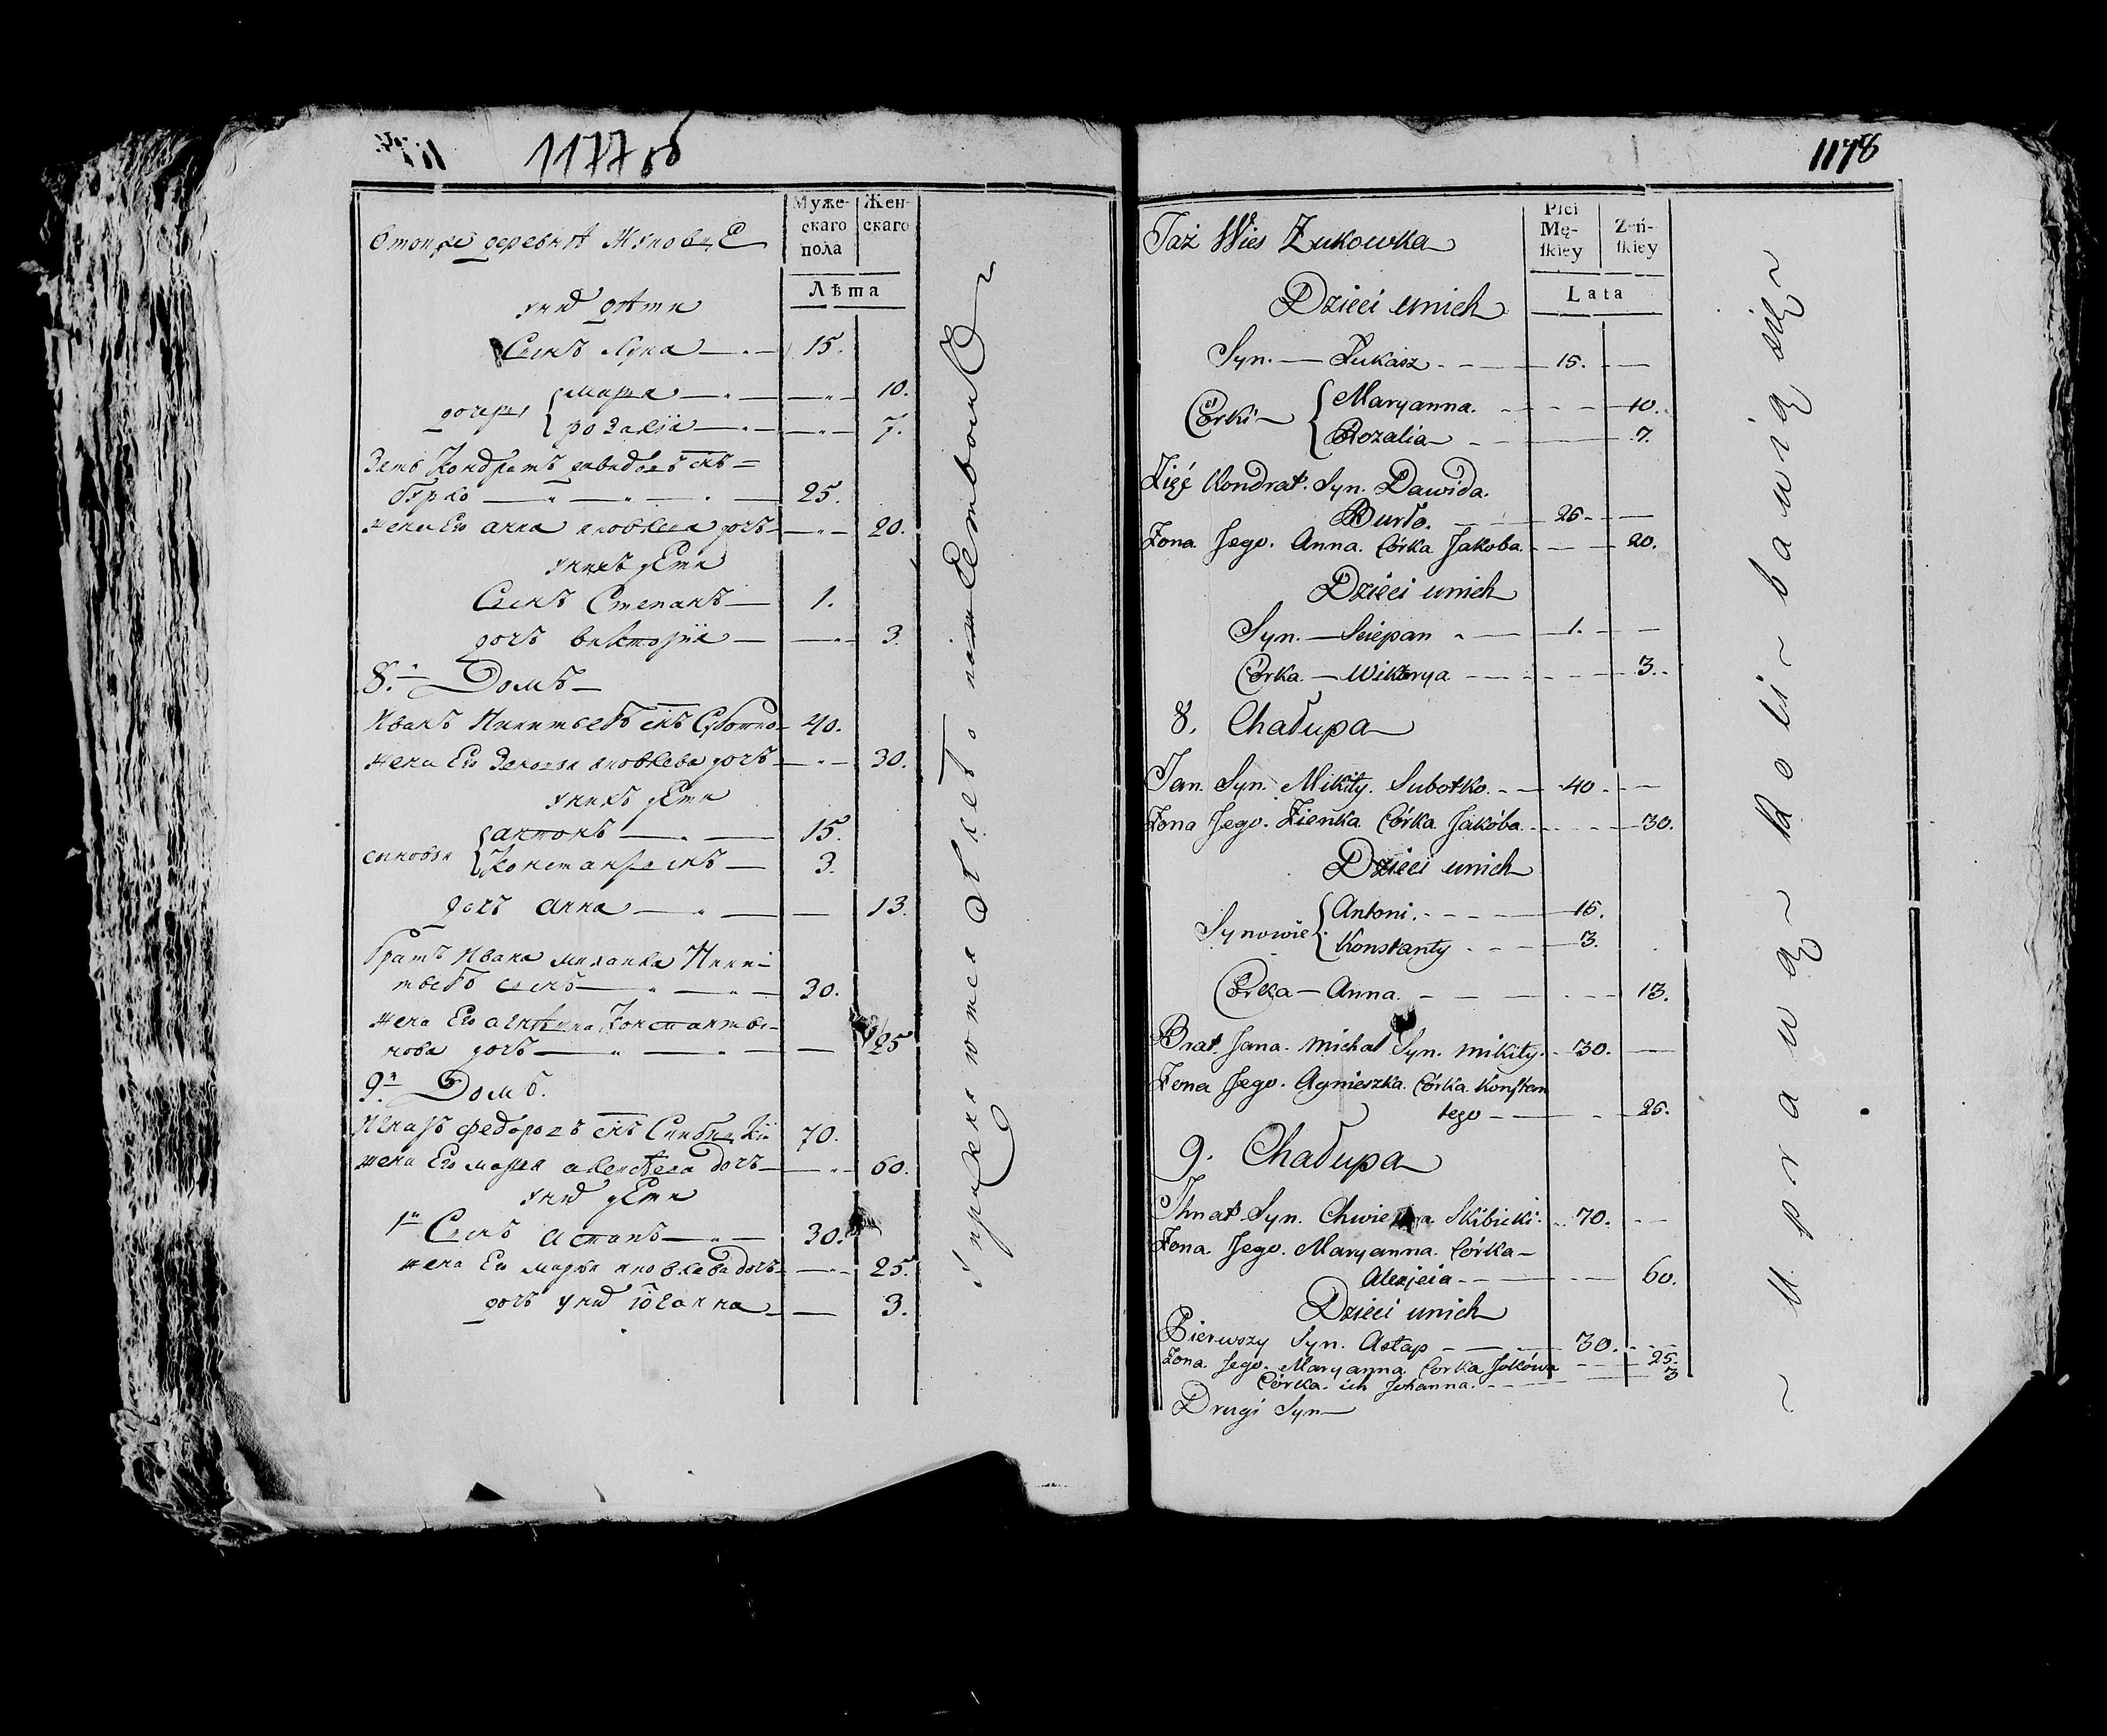 1177 об
Муже-
скаго
пола
Жен-
скаго
Лѣта
Сынъ Лука 15.
дочери
марья 10.
розалiя 7.
Зять Кондратъ давидовъ снъ
бурко 25.
жена Его анна яковлева дочь 20.
уних дети
Сынъ Степанъ 1.
дочь викторiя 3.
8. Домъ
Иванъ Никитьевъ снъ Суботко 40.
жена Его яковлева дочь 30.
уних дети
сыновя
антонъ 15.
3.
дочь анна 13.
братъ Ивана михаила Ники-
тьевъ сынъ 30.
жена Его Константи-
нова дочь 25
9. Домъ.
федоровъ снъ 70.
жена Его марья дочь 60.
уних дети
1й Сынъ астапъ 30.
жена Его марья яковлева дочь 25.
дочь уних iоганна 3.
1178
Taż Wies Żukowka
Płci
Mę-
skiey
Żeń-
skiey
Lata
Dzieci unich
Syn. Łukasz 15.
Córki
Maryanna. 10.
Rozalia 7.
Zięć Kondrat. Syn. Dawida.
Burko. 25.
Zona Jego. Anna. Córka Jakoba. 20.
Dzieci unich
Syn. Sciepan 1.
Corka. Wiktorya 3.
8. Chałupa
Jan. Syn. Mikity. Subotko. 40.
Zona Jego. Zienka Córka Jakóba. 30.
Dzieci unich
Synowie
Antoni. 15.
Konstanty 3.
Córka Anna. 13.
Brat. Jana. Michał Syn. mikity. 30.
Zona Jego. Agnieszka. Córka. Konstan
tego 25.
9. Chałupa
Ihnat Syn. Skibicki. 70.
Zona. Jego. Maryanna. Córka
Alexieia 60.
Dzieci unich
Pierwszy Syn. Astap 30.
Zona. Jego. Maryanna Corka Jakówa 25.
Córka. ich Johanna. 3
Drugi Syn
uprawą koli bawią się